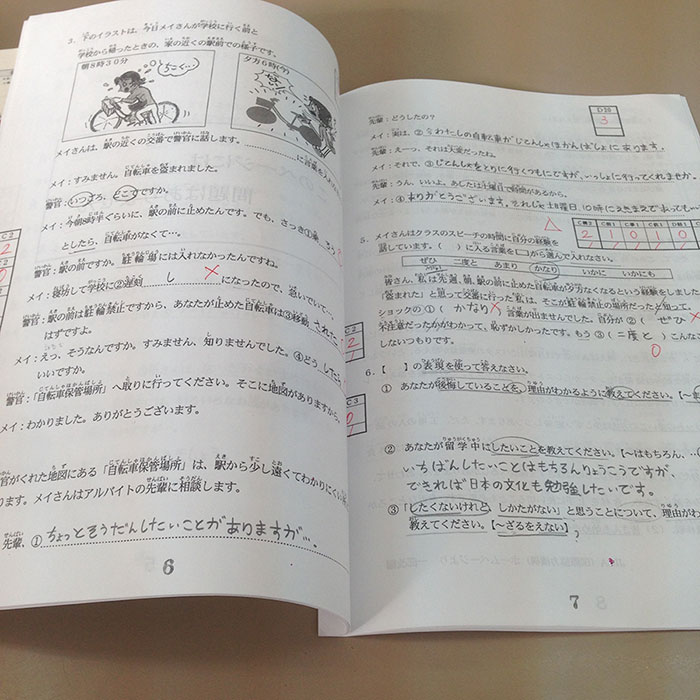 3. 下のイラストは、今日メイさんが学校に行く前と
学校から帰ったときの、家の近くの駅前での様子です。
朝8時30分
ちこく…
夕方6時(今)
メイさんは、駅の近くの交番で警官に話します。
に言葉を入
メイ：すみません。自転車を盗まれました。
警官：いつごろ、どこでですか。
メイ：今朝8時半ぐらいに、駅の前に止めたんです。でも、さっき①
としたら、自転車がなくて…。
警官：駅の前ですか。駐輪場には入れなかったんですね。
メイ：寝坊して学校に②遅刻 し になったので、急いでいて…。
警官：駅の前は駐輪禁止ですから、あなたが止めた自転車は③移動
はずですよ。
メイ：えっ、そうなんですか。すみません、知りませんでした。④どう
いいですか。
警官：「自転車保管場所」へ取りに行ってください。そこに地図がありますから。
メイ：わかりました。ありがとうございます。
官がくれた地図にある「自転車保管場所」は、駅から少し遠くてわかりにくい
ります。メイさんはアルバイトの先輩に相談します。
先輩、①ちょっとそうだんしたいことがありますが…
6
D20
3
先輩：どうしたの？
メイ：実は、②今わたしの自転車がじてんしゃほかんばしょにあります。
先輩：えーっ、それは大変だったね。
メイ：それで、③じてんしゃをとりに行くつもにですが、いっしょに行ってくれませんか。
先輩：うん、いいよ。あしたは土曜日で時間があるから。
メイ：④ありがとうございます。それじゃ土曜日、10時に
5. メイさんはクラスのスピーチの時間に自分の経験を
話しています。( )に入る言葉を から選んで入れなさい。
ぜひ 二度と あまり かなり いかに いかにも
皆さん、私は先週、朝、駅の前に止めた自転車が夕方なくなるという経験をしました。
「盗まれた」と思って交番に行った私は、そこが駐輪禁止の場所だったと知って、
ショックの①( かなり )言葉が出ませんでした。自分が②( ぜひ )
不注意だったかがわかって、恥ずかしかったです。もう③(二度と )こんなことを
しないつもりです。
6. 【 】の表現を使って答えなさい。
① あなたが後悔していることを、理由がわかるように教えてください。
② あなたが留学中にしたいことを教えてください。【～はもちろん、
いちばんしたいことはもちろんりょうこうですが、
できれば日本の文化も勉強したいです。
③「したくないけれど、しかたがない」と思うことについて、理由がわ
教えてください。【～ざるをえない】
7